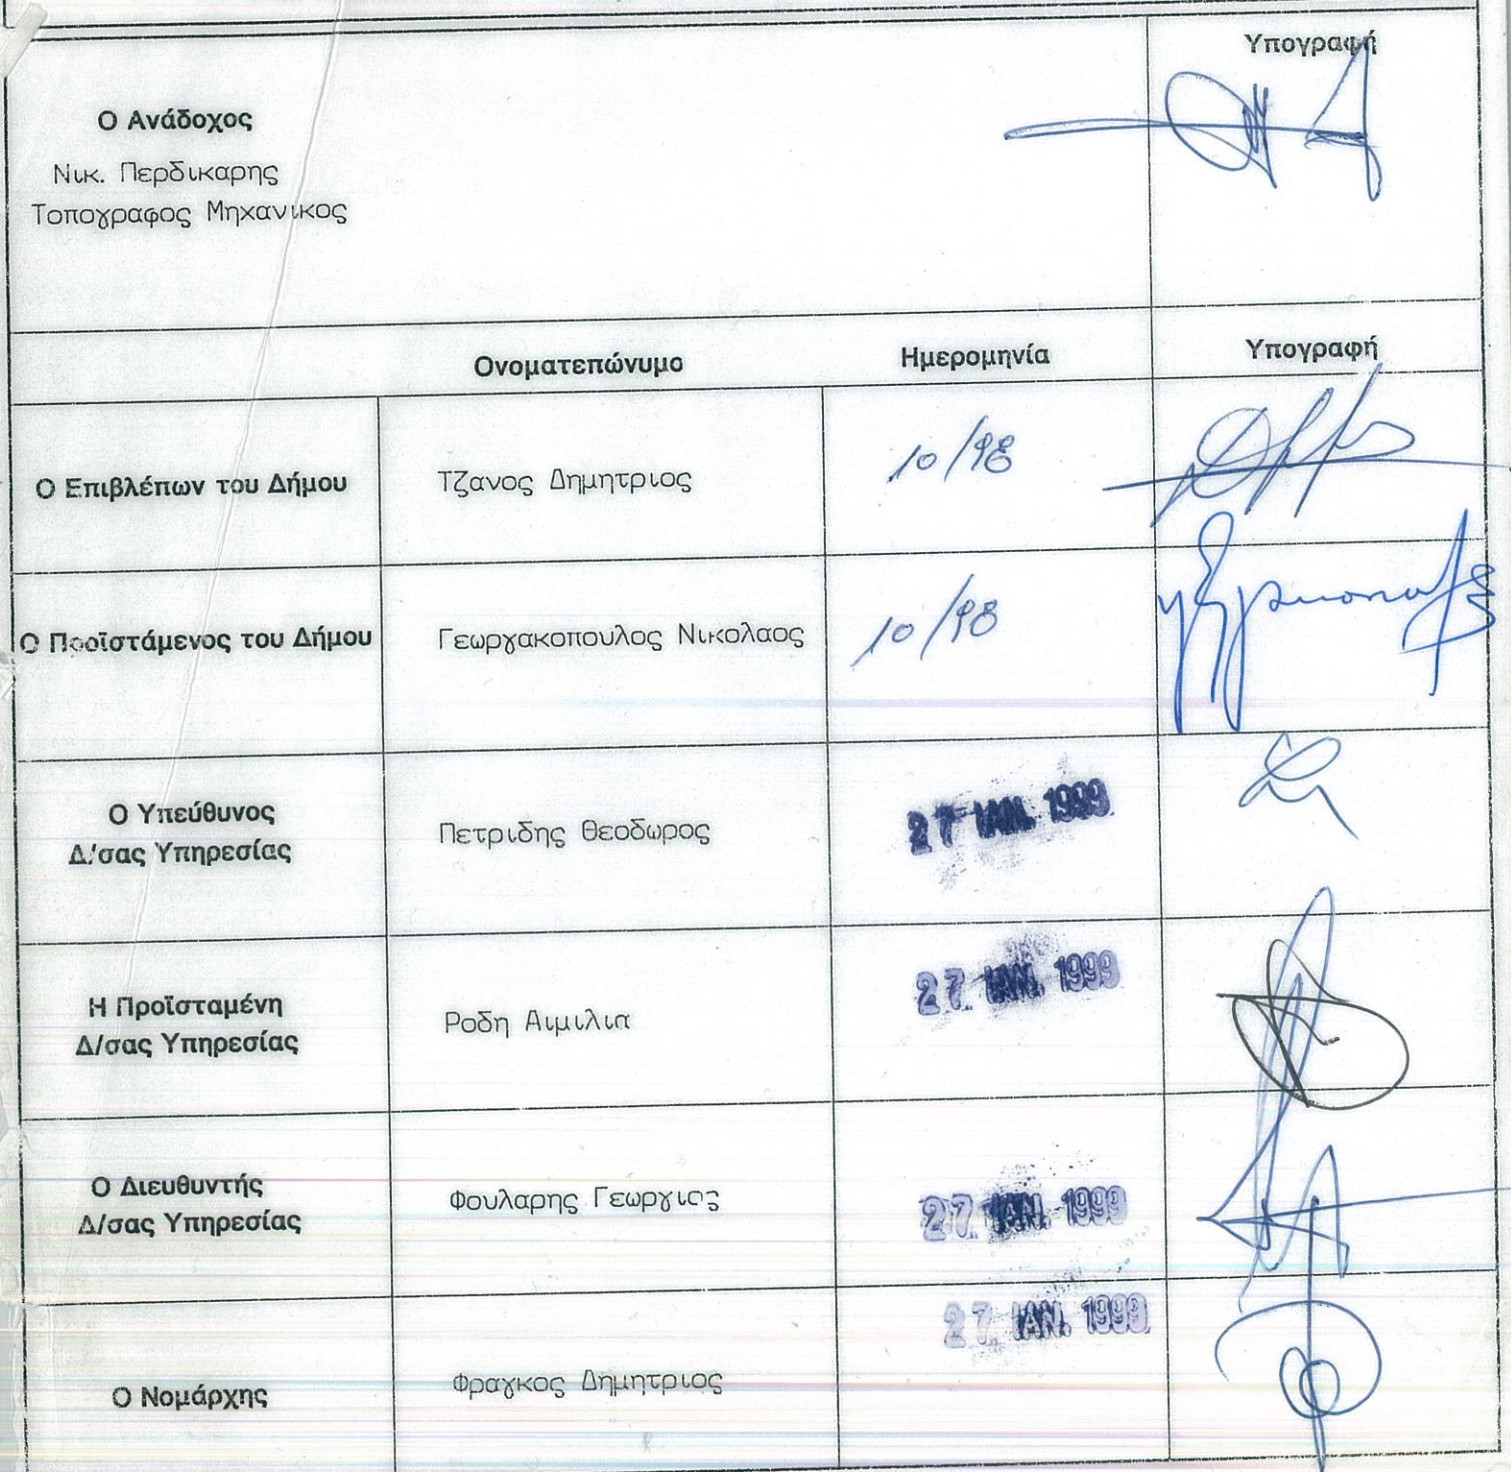 Υπογραφή
Ο Ανάδοχος
Νικ. Περδικαρης
Τοπογραφος Μηχανικος
Ονοματεπώνυμο Ημερομηνία Υπογραφή
Ο Επιβλέπων του Δήμου Τζανος Δημητριος 10/98
Ο Προϊστάμενος του Δήμου Γεωργακοπουλος Νικολαος 10/98
Ο Υπεύθυνος
Δ/σας Υπηρεσίας Πετριδης Θεοδωρος 27 ΙΑΝ. 1999
Η Προϊσταμένη
Δ/σας Υπηρεσίας Ροδη Αιμιλια 27. ΙΑΝ. 1999
Ο Διευθυντής
Δ/σας Υπηρεσίας Φουλαρης Γεωργιος 27. ΙΑΝ. 1999
Ο Νομάρχης Φραγκος Δημητριος 27. ΙΑΝ. 1999